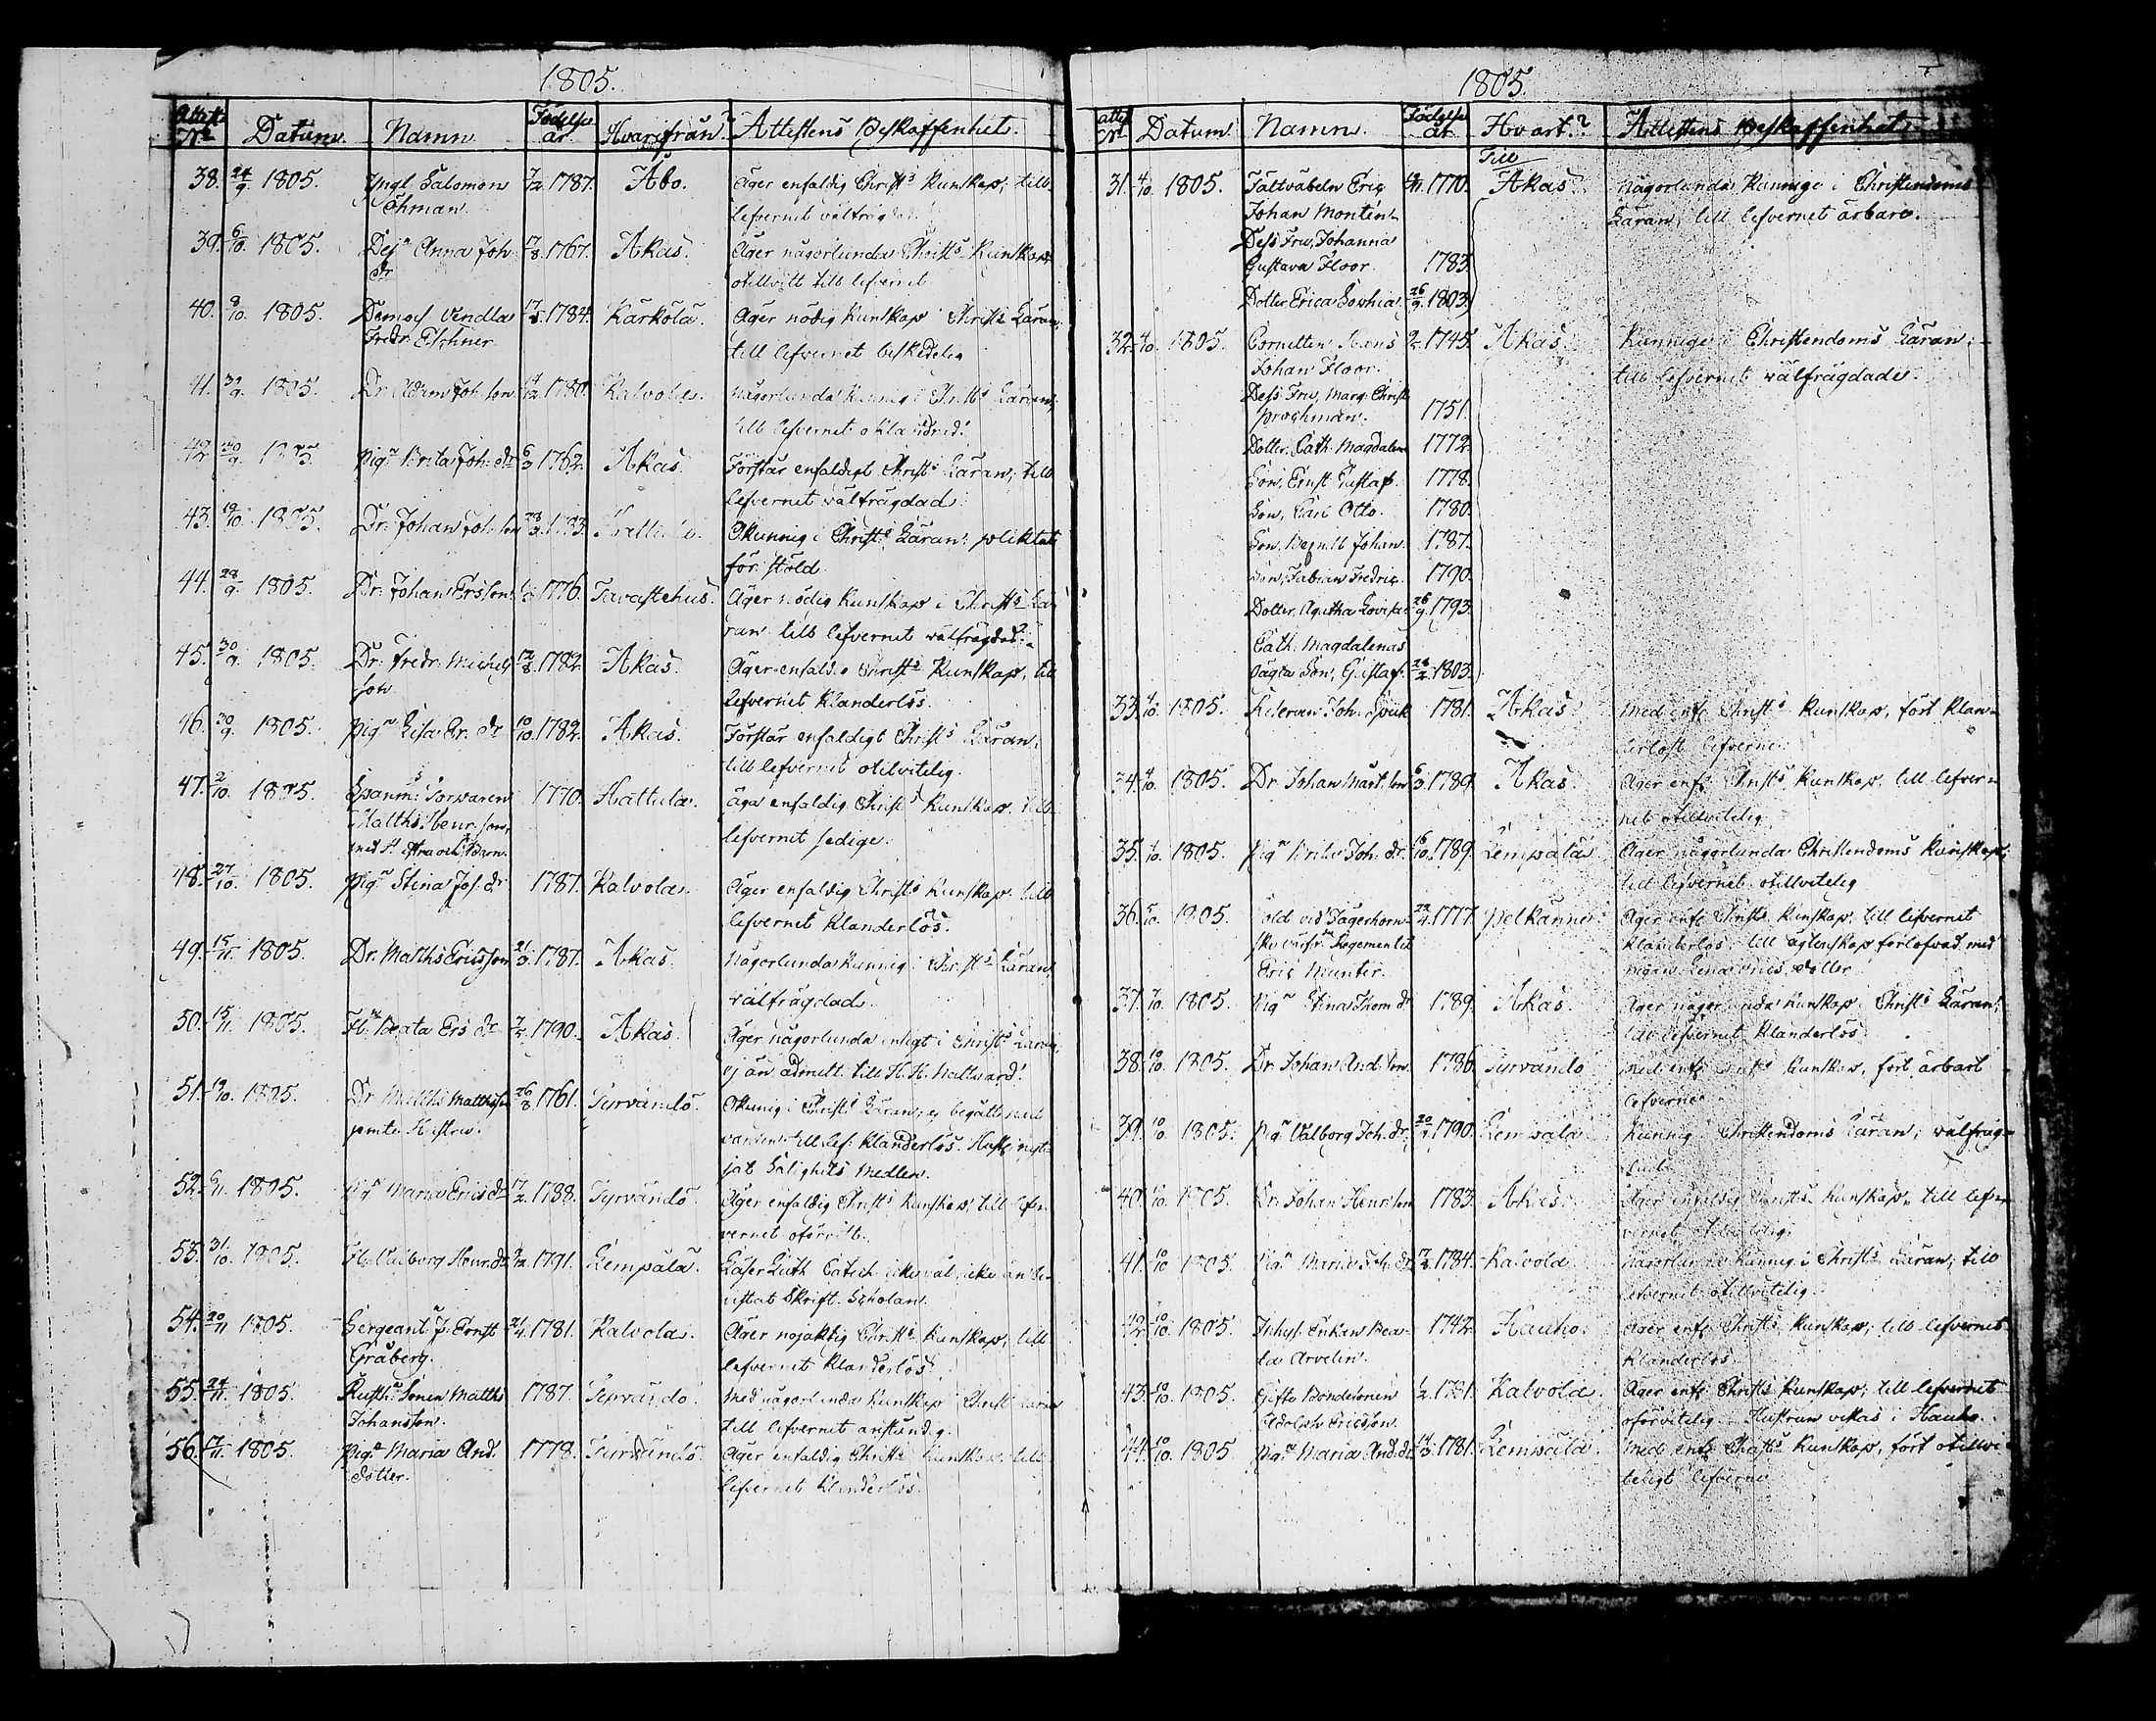 1805.
Attest. No Datum. Namn Födelse år. Hvarifrån? Attestens Beskaffenhet.
38. 24/9 1805. Yngl. Salomon 7/12 1787. Åbo. Äger enfaldig Christs Kunskap; till
Öhman. lefvernet välfrägdad.
39. 6/10. 1805. Dejn Anna Joh 17/8. 1767. Akas. Äger någorlunda Christs Kunskap
dr otillvitt till lefvernet
40. 8/10. 1805. Demois Vendla 17/5. 1784. Kärkölä. Äger nödig Kunskap i Christs Läran;
Fredr. Elshner till lefvernet beskedelig
41. 30/9. 1805. Dr Adam Joh. son 1780. Kalvola. Någorlunda kunnig i Christs Läran,
till lefvernet oklandrad.
42 30/9. 1805. Pign Brita Joh. dr 6/3 1762. Akas. Förstår enfaldigt Christs Läran; till
lefvernet välfrägdad.
43. 19/10 1805. Dr. Johan Joh. son Okunnig i Christs Läran; pliktat
för stöld
44. 28/9. 1805. Dr. Johan Ersson 1776. Tavastehus. Äger nödig Kunskap i Christs Lä-
ran till lefvernet välfrägdad.
45. 30/9. 1805. Dr. Fredr. Michels 12/8. 1782. Akas. Äger enfald. Christs Kunskap, till
son lefvernet Klanderlös.
46. 30/9. 1805. Pign Lisa Er. dr 10/10. 1782. Akas. Förstår enfaldigt Christs Läran,
till lefvernet otilvitelig.
47. 2/10. 1805. Spanm: Torparen 1770. Hattula. äga enfaldig Christs Kunskap, till
Matths Henr. son, lefvernet sedige.
med H:ustru och Barn.
48. 27/10. 1805. Pign Stina Jos. dr 1787. Kalvola. Äger enfaldig Christs Kunskap till
lefvernet Klanderlös.
49. 15/11. 1805. Dr. Matths Ericsson 21/3. 1787. Akas. Någorlunda kunnig i Christs Läran,
välfrägdad.
50. 15/11. 1805. Fl: Beata Ers dr 1790. Akas. Äger någorlunda insigt i Christs Läran,
ej än admitt. till H. H. Nattvard.
51. 10/10. 1805. Dr Matths Mattsson 26/8 1761. Tyrvändö. Okunnig i Christs Läran, ej begått
jemte Hustru. till lef. Klanderlös. Hustr.
Salighets Medlen.
52. 1805. Pign Maria Erics dr 17/2. 1788. Tyrvändö. Äger enfaldig Christs Kunskap, till lef-
vernet oförvitt.
53. 31/10. 1805. Fl. Valborg Henr. dr 1791. Lempälä. Läser Luth Catech icke väl, icke än be-
vistat Skrift. Scholan.
54. 20/11 1805. Sergeant J. Ernst 21/4. 1781. Kalvola. Äger nojaktig Christs Kunskap, till
Gråberg. lefvernet Klanderlös.
55. 24/11. 1805. Rusth: Sonen Matths 1787. Tyrvändö. Med någorlunda Kunskap i Christs Läran
Johansson. till lefvernet anständig.
56. 17/11. 1805. Pign Maria And. 1778. Tyrvändö. Äger enfaldig Christs Kunskap, till
dotter. lefvernet Klanderlös.
1805.
attest No Datum. Namn. Födelse år Hvart? Attestens Beskaffenhet.
Till
31. 4/10 1805. Fältväbeln Eric 1770. Akas. Någorlunda kunnige i Christendoms
Johan Montén Läran, till lefvernet ärbare.
Dess Fru, Johanna
Gustava Floor. 1783.
Dotter Erica Sophia 26/9. 1803.
32. 4/10. 1805. Cornetten Hans 1745. Akas. Kunnige i Christendoms Läran;
Johan Floor. till lefvernet välfrägdade.
Dess Fru, Marg. Christ.
Prochman. 1751.
Dotter, Cath. Magdalena 1772.
Son, Ernst Gustaf. 1778.
Son, Carl Otto. 1780.
Son, Johan. 1787.
Son, Fabian Fredric. 1790.
Dotter, Agatha Lovisa 26/9. 1793.
Cath. Magdalenas
oägta Son, Gustaf. 28/2. 1803.
33. 4/10. 1805. Joh. 1781. Akas. Med enf. Christs Kunskap, fört klan-
derlöst lefverne.
34. 4/10 1805. Dr Johan Matt. son 6/3. 1789. Akas. Äger enf. Christs Kunskap, till lefver-
net otillvitelig.
35. 1805. Pign Brita Joh. dr. 16/10. 1789. Lempälä. Äger någorlunda Christendoms Kunskap,
till lefvernet otillvitelig
36. 5/10. 1805. Sold vid Fägerhorn- 1777. Pelkänne. Äger enf. Christs Kunskap, till lefvernet
ska värfr. Regementet klanderlös: till ägtenskap förlofvad med
Eric Munter. pigan Lena Erics dotter
37. 7/10. 1805. Pign Stina Thom dr 1789. Akas. Äger någorlunda Kunskap i Christs Läran,
till lefvernet Klanderlös.
38. 10/10. 1805. Dr. Johan And. son 1786. Tyrvändö Med enf. Christs Kunskap, fört ärbart
lefverne.
39. 10/10 1805. Pign Valborg Joh. dr. 1790. Lempälä. Kunnig i Christendoms Läran; välfräg-
dad.
40. 10/10. 1805. Dr. Johan Henr. son 1783. Akas. Äger enfaldig Christs Kunskap, till lefver-
vernet otillvitelig.
41. 10/10 1805. Pign Maria Joh. dr 17/2. 1784. Kalvola Någorlunda kunnig i Christs Läran; till
lefvernet otillvitelig.
42. 10/10. 1805. Inhys. Enkan Bea- 1742. Hauho. Äger enf. Christs Kunskap; till lefvernet
ta Arvelin. Klanderlös.
43. 10/10. 1805. Gifte Bondesonen 1781. Kalvola. Äger enf. Christs Kunskap; till lefvernet
Adolph Ericsson. oförvitelig. Hustrun vistas i Hauho.
44. 10/10. 1805 Pign Maria And. dr 14/3. 1781. Lempälä. Med enf. Christs Kunskap, fört otillvi-
teligt lefverne